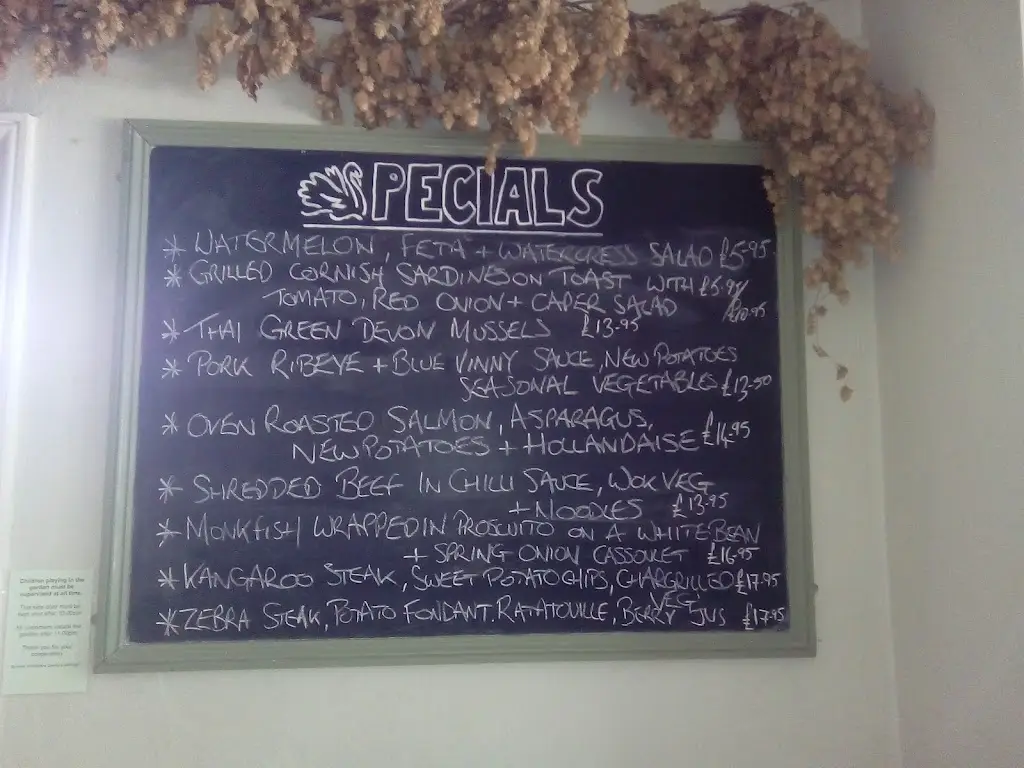 SPECIALS
* WATERMELON, FETA + WATERCRESS SALAD £5.95
* GRILLED CORNISH SARDINES ON TOAST WITH £5.95/
TOMATO, RED ONION + CAPER SALAD £10.95
* THAI GREEN DEVON MUSSELS £13.95
* PORK RIBEYE + BLUE VINNY SAUCE, NEW POTATOES
SEASONAL VEGETABLES £13.50
* OVEN ROASTED SALMON, ASPARAGUS,
NEW POTATOES + HOLLANDAISE £14.95
* SHREDDED BEEF IN CHILLI SAUCE, WOK VEG
+ NOODLES £13.95
* MONKFISH WRAPPED IN PROSCUITO ON A WHITE BEAN
+ SPRING ONION CASSOULET £16.95
* KANGAROO STEAK, SWEET POTATO CHIPS, CHARGRILLED £17.95
VEG.
* ZEBRA STEAK, POTATO FONDANT. RATATOUILLE, BERRY JUS £17.95
Children playing in the
garden must be
supervised at all time.
Thank you for your